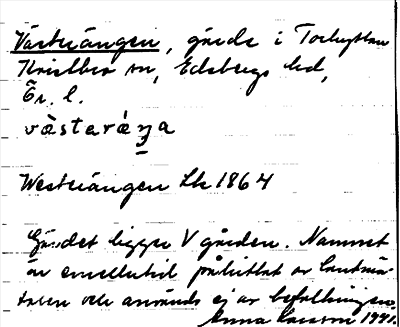 Västerängen, gärde i Torhyttan
Knista sn, Edsbergs hd,
Ör. l.
vàstərǽŋa
Westerängen Lk 1864
Gärdet ligger V gården. Namnet
är emellertid påhittat av lantmä-
taren och används ej av befolkningen.
Anna Larsson 1941.